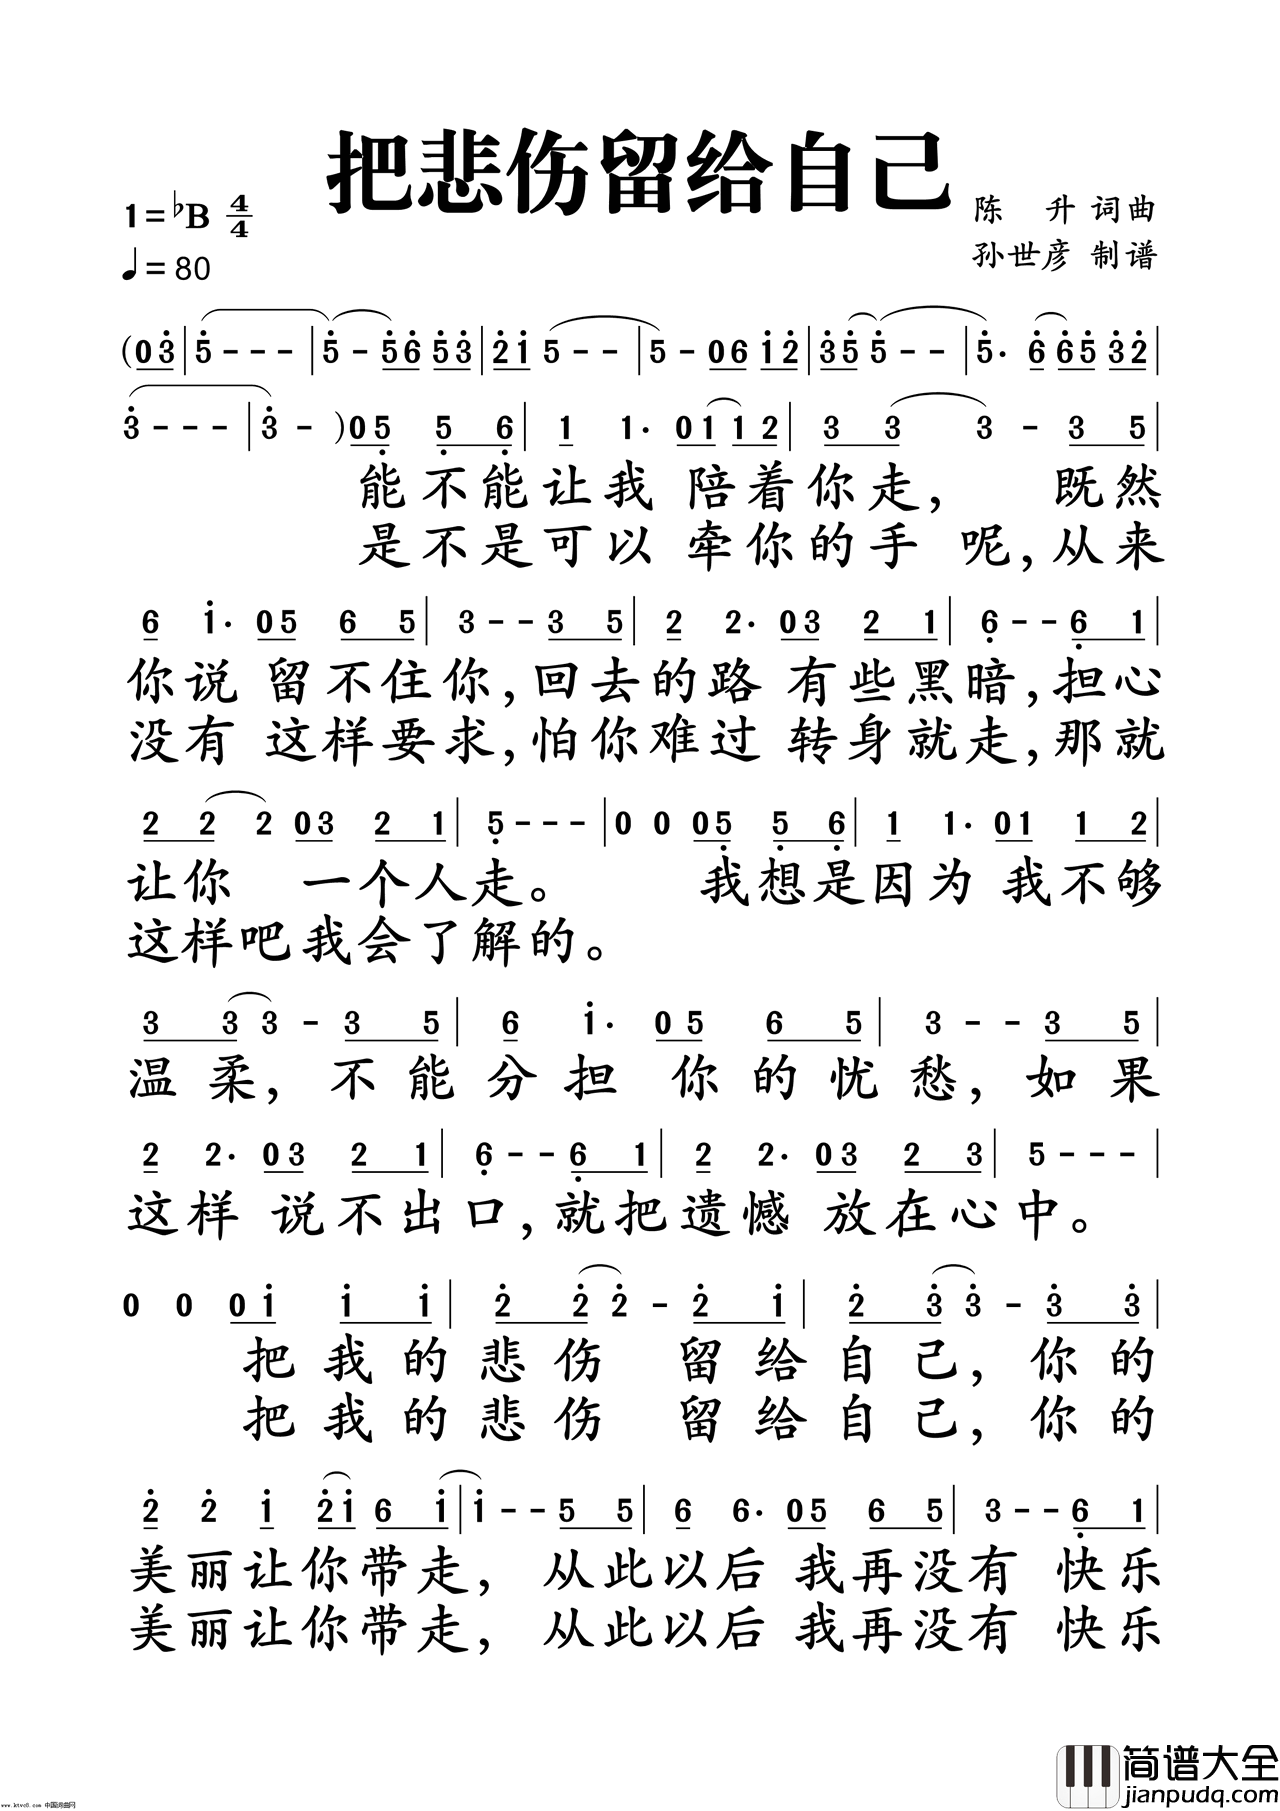 把悲伤留给自己
1=♭B 4/4
♩=80
陈 升 词曲
孙世彦 制谱
(0 3̇ | 5̇ - - - | 5̇ - 5̇ 6̇ 5̇ 3̇ | 2̇ 1̇ 5 - - | 5 - 0 6 1̇ 2̇ | 3̇ 5̇ 5̇ - - | 5̇· 6̇ 6̇ 5̇ 3̇ 2̇ |
3̇ - - - | 3̇ - ) 0 5̣ 5̣ 6̣ | 1 1· 0 1 1 2 | 3 3 3 - 3 5 |
能不能让我 陪着你走, 既然
是不是可以 牵你的手 呢,从来
6 1̇· 0 5 6 5 | 3 - - 3 5 | 2 2· 0 3 2 1 | 6̣ - - 6̣ 1 |
你说 留不住你,回去的路 有些黑暗,担心
没有 这样要求,怕你难过 转身就走,那就
2 2 2 0 3 2 1 | 5̣ - - - | 0 0 0 5̣ 5̣ 6̣ | 1 1· 0 1 1 2
让你 一个人走。 我想是因为 我不够
这样吧我会了解的。
3 3 3 - 3 5 | 6 1̇· 0 5 6 5 | 3 - - 3 5 |
温柔, 不能分担 你的忧愁,如果
2 2· 0 3 2 1 | 6̣ - - 6̣ 1 | 2 2· 0 3 2 3 | 5 - - - |
这样 说不出口,就把遗憾 放在心中。
0 0 0 1̇ 1̇ 1̇ | 2̇ 2̇ 2̇ - 2̇ 1̇ | 2̇ 3̇ 3̇ - 3̇ 3̇ |
把我的悲伤 留给自己,你的
把我的悲伤 留给自己,你的
2̇ 2̇ 1̇ 2̇ 1̇ 6 1̇ | 1̇ - - 5 5 | 6 6· 0 5 6 5 | 3 - - 6̣ 1 |
美丽让你带走,从此以后 我再没有 快乐
美丽让你带走,从此以后 我再没有 快乐
简谱大全
jianpudq.com
www.ktvc8.com 中国词曲网